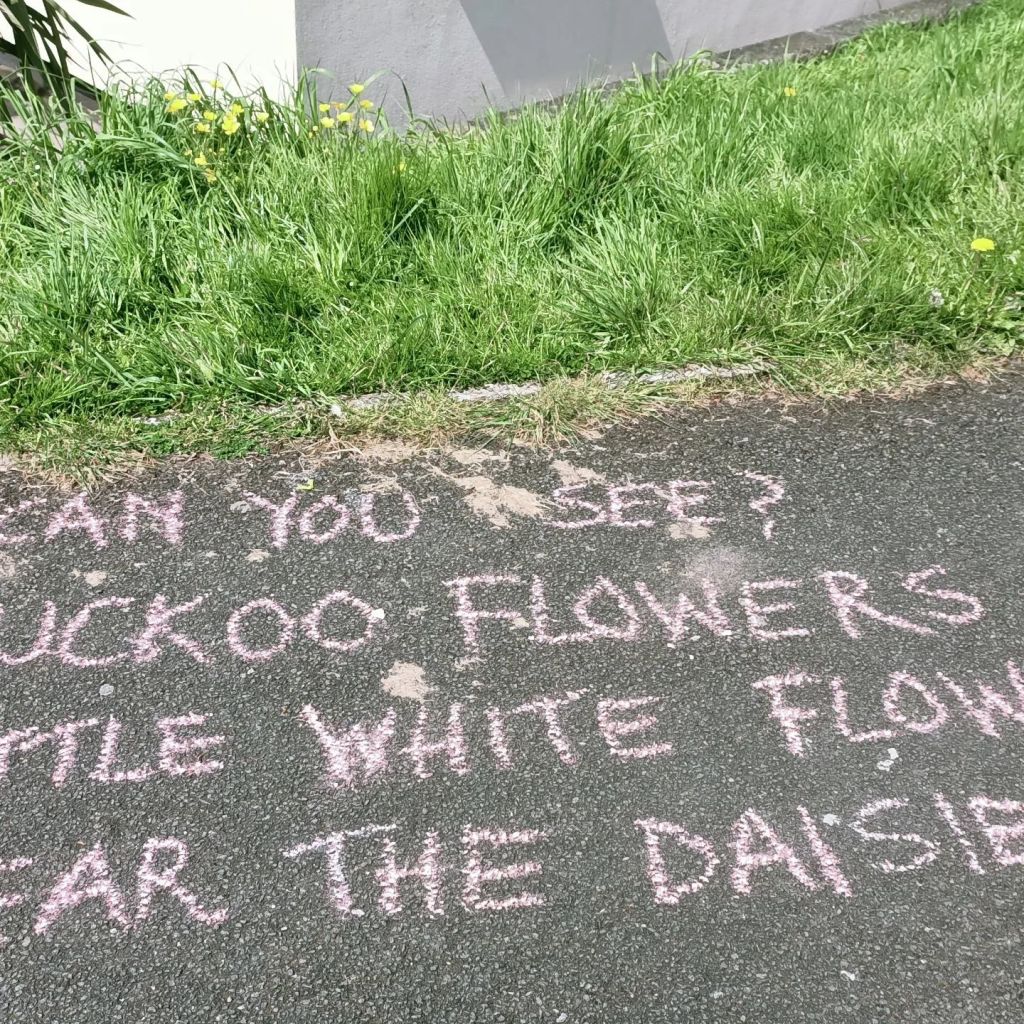 CAN YOU SEE?
UCKOO FLOWERS
TTLE WHITE FLOW
EAR THE DAISIE